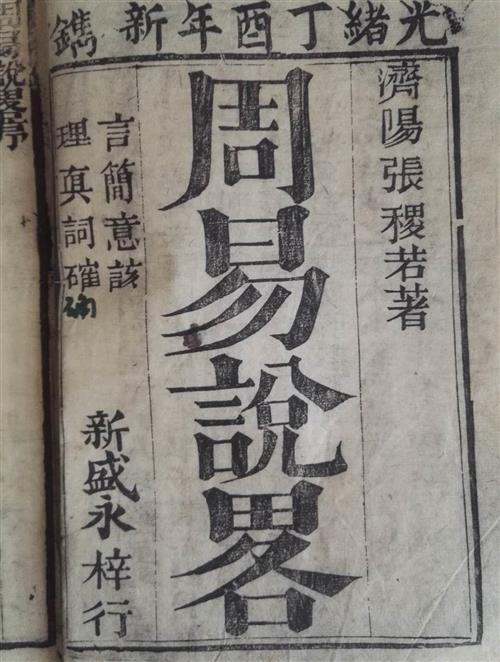 光緒丁酉年新鐫
濟陽張稷若著
周易說畧
言簡意該
理真詞確
新盛永梓行